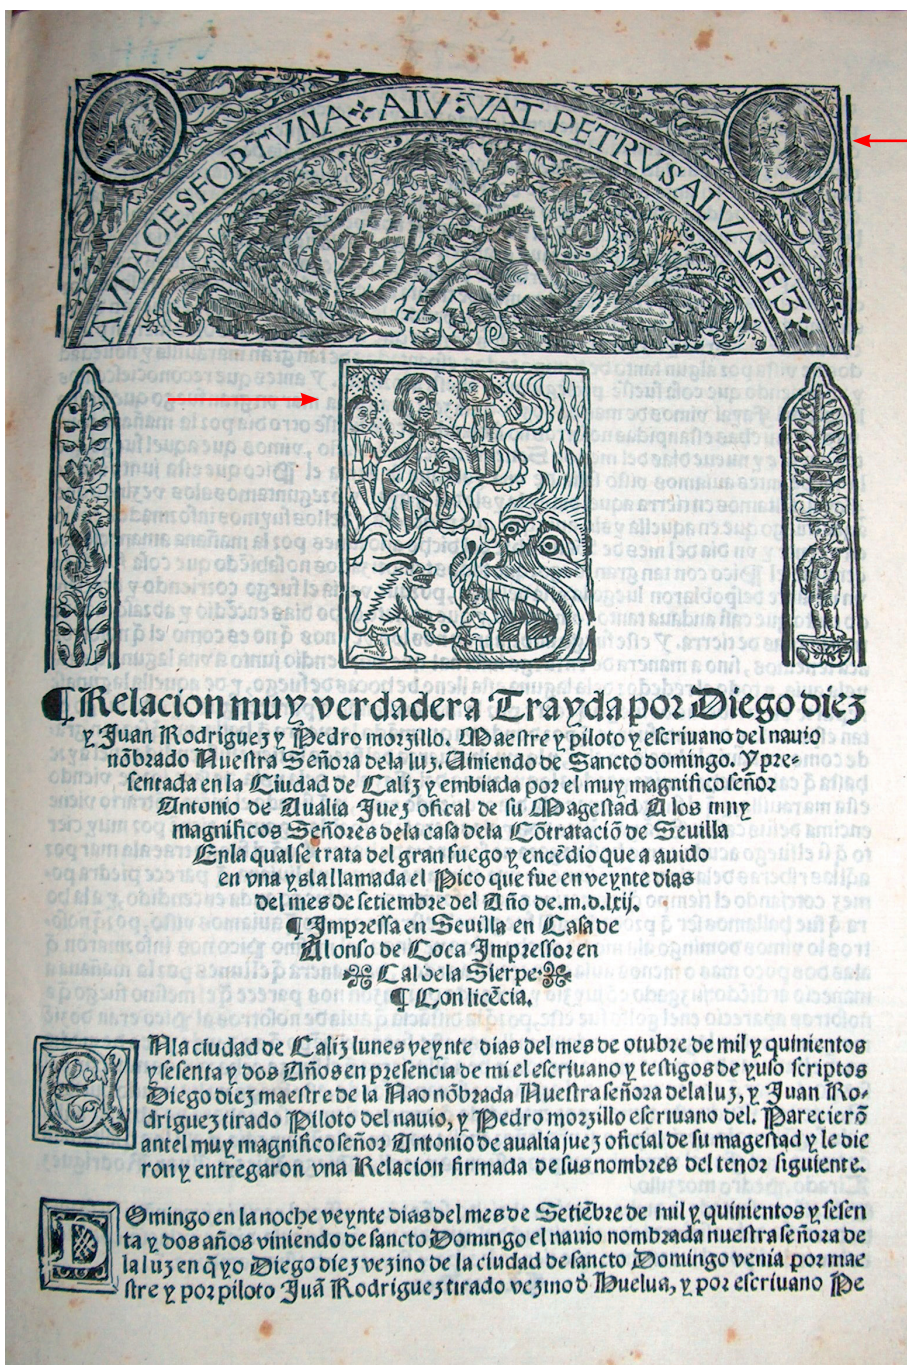 AVDACES FORTVNA ❖ AIV : VAT PETRVS ALVAREZ
¶ Relacion muy verdadera Trayda por Diego diez
y Juan Rodriguez y Pedro morzillo. Maestre y piloto y escriuano del nauio
nõbrado Nuestra Señora dela luz. Uiniendo de Sancto domingo. Y pre-
sentada en la Ciudad de Caliz y embiada por el muy magnifico señor
Antonio de Aualia Juez oficial de su Magestad A los muy
magnificos Señores dela casa dela Cõtrataciõ de Seuilla
Enla qual se trata del gran fuego y encẽdio que a auido
en vna ysla llamada el Pico que fue en veynte dias
del mes de setiembre del Año de.m.d.lxij.
¶ Impressa en Seuilla en Casa de
Alonso de Coca Impressor en
Cal dela Sierpe.
¶ Con licẽcia.
ENla ciudad de Caliz lunes veynte dias del mes de otubre de mil y quinientos
y sesenta y dos Años en presencia de mi el escriuano y testigos de yuso scriptos
Diego diez maestre de la Nao nõbrada Nuestra señora dela luz, y Juan Ro-
driguez tirado Piloto del nauio, y Pedro morzillo escriuano del. Parecierõ
antel muy magnifico señor Antonio de aualia juez oficial de su magestad y le die
ron y entregaron vna Relacion firmada de sus nombres del tenor siguiente.
DOmingo en la noche veynte dias del mes de Setiẽbre de mil y quinientos y sesen
ta y dos años viniendo de sancto Domingo el nauio nombrada nuestra señora de
la luz en q̃ yo Diego diez vezino de la ciudad de sancto Domingo venia por mae
stre y por piloto Juã Rodriguez tirado vezino đ Huelua, y por escriuano Pe